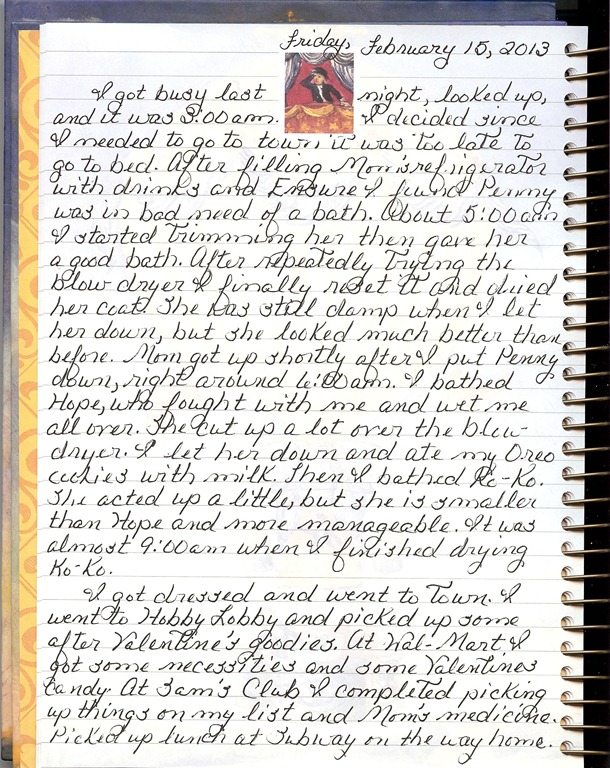 Friday, February 15, 2013
I got busy last night, looked up,
and it was 3:00am. I decided since
I needed to go to town it was too late to
go to bed. After filling Mom's refrigerator
with drinks and Ensure I found Penny
was in bad need of a bath. About 5:00am
I started trimming her then gave her
a good bath. After repeatedly trying the
blow dryer I finally reset it and dried
her coat. She was still damp when I let
her down, but she looked much better than
before. Mom got up shortly after I put Penny
down, right around 6:00am. I bathed
Hope, who fought with me and wet me
all over. She cut up a lot over the blow-
dryer. I let her down and ate my Oreo
cookies with milk. Then I bathed Ko-Ko.
She acted up a little, but she is smaller
than Hope and more manageable. It was
almost 9:00am when I finished drying
Ko-Ko.
I got dressed and went to Town. I
went to Hobby Lobby and picked up some
after Valentine's goodies. At Wal-Mart, I
got some necessities and some Valentines
Candy. At Sam's Club I completed picking
up things on my list and Mom's medicine.
Picked up lunch at Subway on the way home.